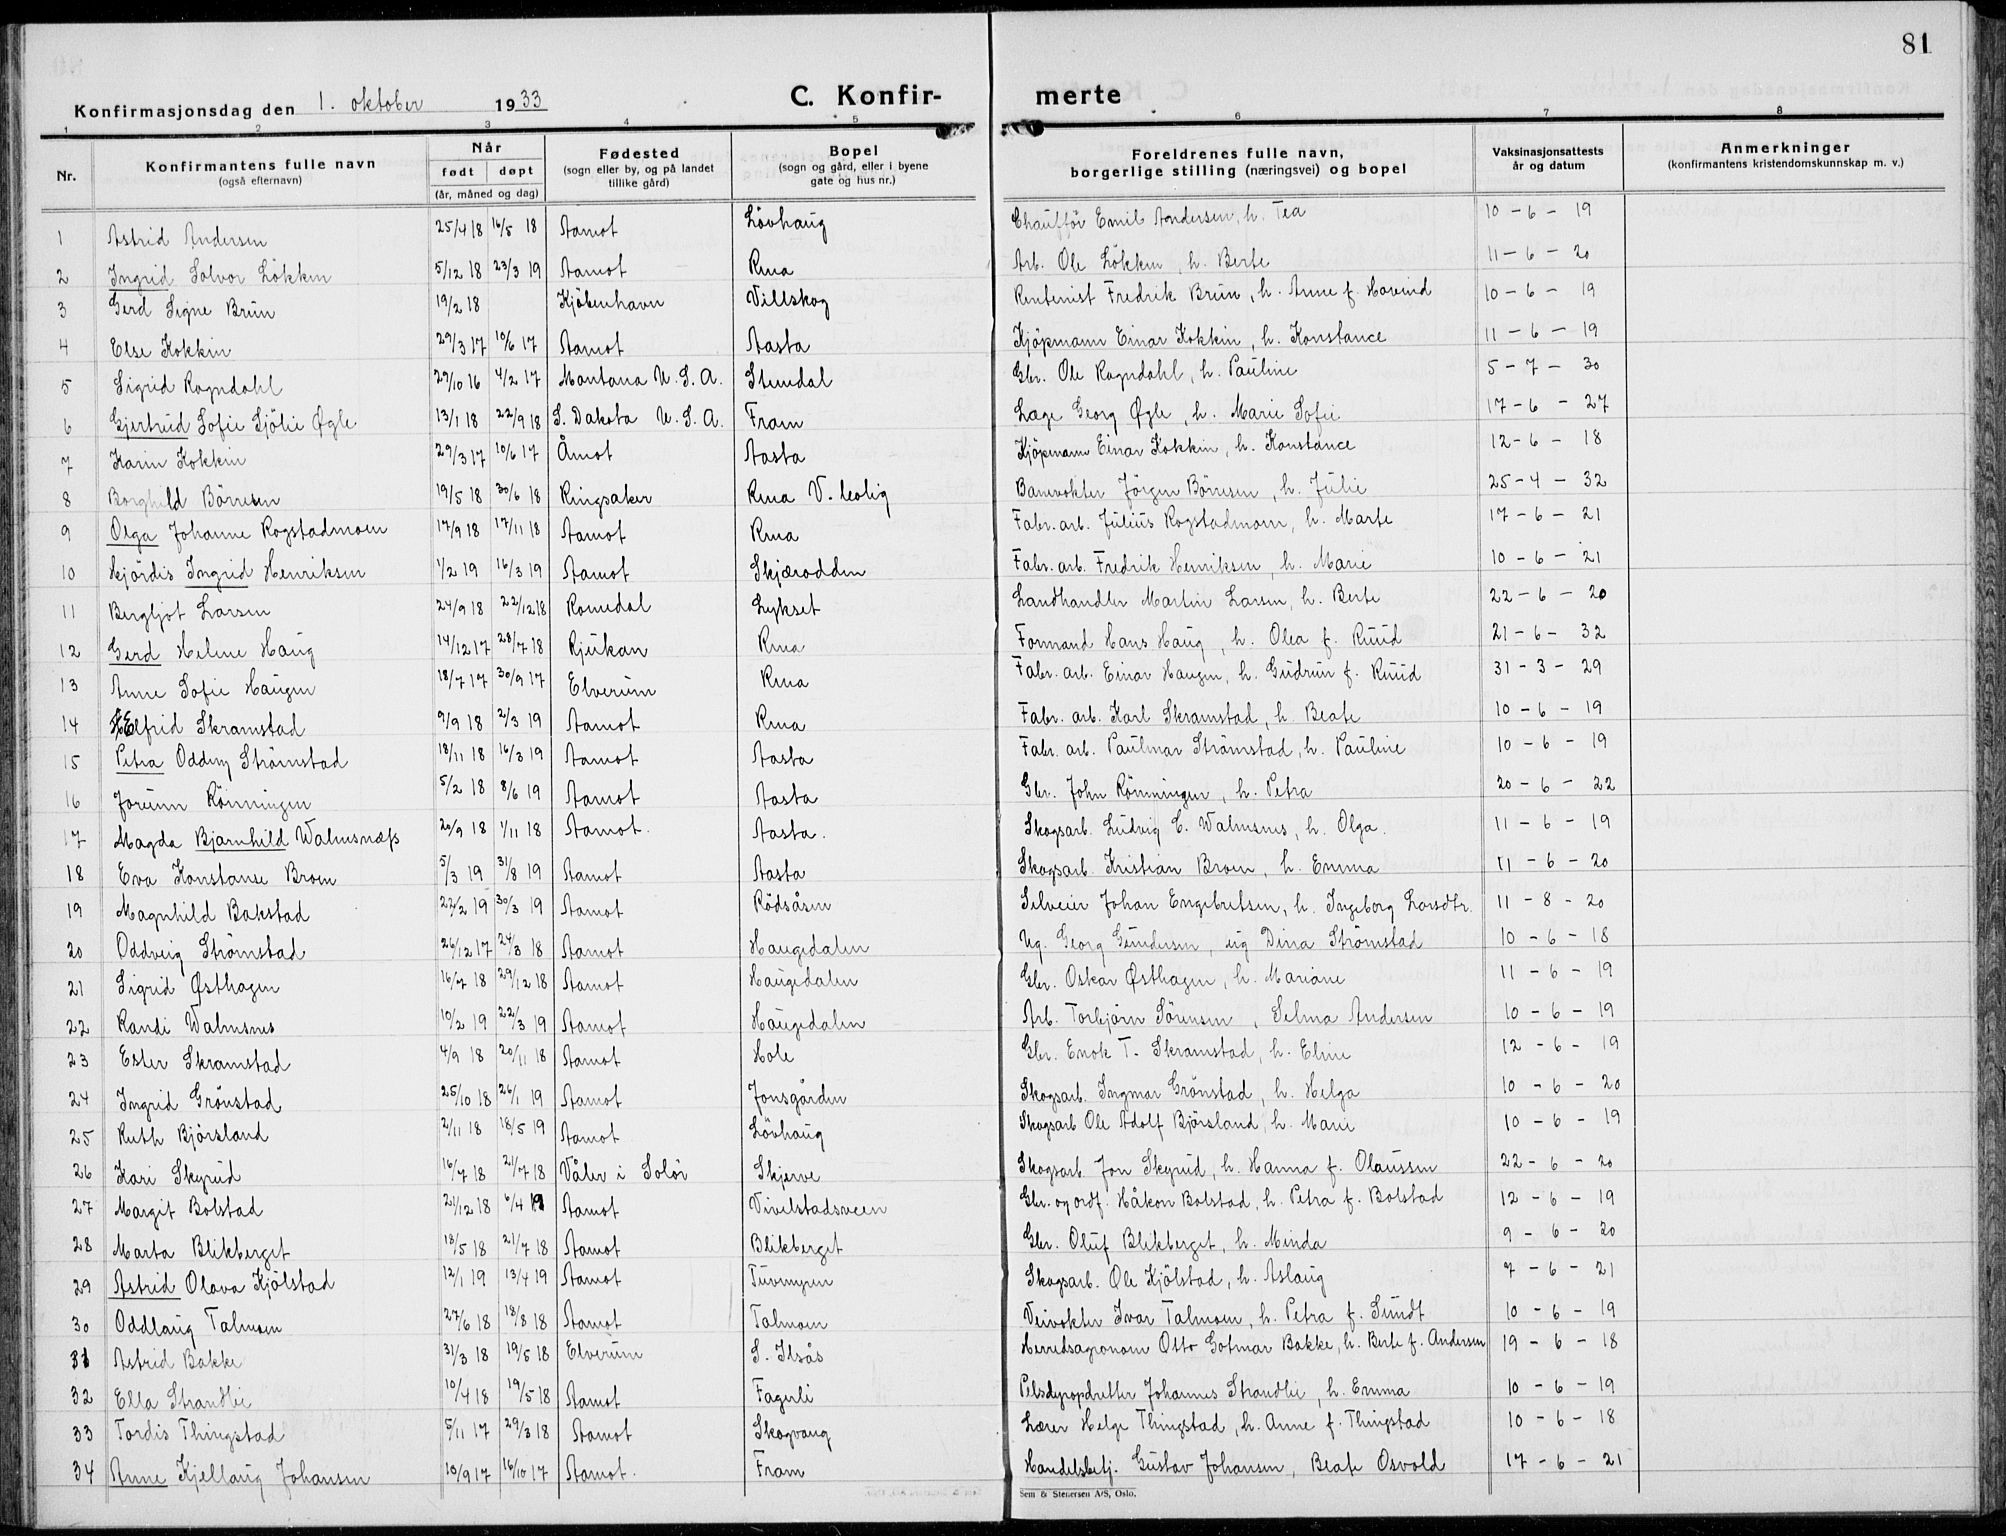 81
Konfirmasjonsdag den 1. oktober 1933 C. Konfir- merte
1 2 3 4 5 6 7 8
Nr. Konfirmantens fulle navn (også efternavn) Når født døpt (år, måned og dag) Fødested (sogn eller by, og på landet tillike gård) Bopel (sogn og gård, eller i byene gate og hus nr.) Foreldrenes fulle navn, borgerlige stilling (næringsvei) og bopel Vaksinasjonsattests år og datum Anmerkninger (konfirmantens kristendomskunnskap m. v.)
1 Astrid Andersen 25/4 18 16/5 18 Aamot Lövhaug Chaufför Emil Andersen, h. Tea 10 - 6 - 19
2 Ingrid Solvor Lökken 5/12 18 23/3 19 Aamot Rena Arb. Ole Lökken, h. Berte 11 - 6 - 20
3 Gerd Signe Brun 19/2 18 Kjöbenhavn Villskog Rentenist Fredrik Brun, h. Anne f. Hovind 10 - 6 - 19
4 Else Kokkin 29/3 17 10/6 17 Aamot Aasta Kjöpmann Einar Kokkin, h. Konstance 11 - 6 - 19
5 Sigrid Rogndahl 29/10 16 4/2 17 Montana U.S.A. Stendal Gbr. Ole Rogndahl, h. Pauline 5 - 7 - 30
6 Gjertrud Sofie Sjölie Øgle 13/1 18 22/9 18 S. Dakota U.S.A. Fram Læge Georg Øgle, h. Marie Sofie 17 - 6 - 27
7 Karin Kokkin 29/3 17 10/6 17 Åmot Aasta Kjöpmann Einar Kokkin, h. Konstance 12 - 6 - 18
8 Borghild Börresen 19/5 18 30/6 18 Ringsaker Rena V. bolig Banevokter Jörgen Börresen, h. Julie 25 - 4 - 32
9 Olga Johanne Rogstadmoen 17/9 18 17/11 18 Aamot Rena Fabr. arb. Julius Rogstadmoen, h. Marte 17 - 6 - 21
10 Hjördis Ingrid Henriksen 1/2 19 16/3 19 Aamot Skjærodden Fabr. arb. Fredrik Henriksen, h. Marie 10 - 6 - 21
11 Bergljot Larsen 24/9 18 22/12 18 Romedal Lykset Landhandler Martin Larsen, h. Berte 22 - 6 - 20
12 Gerd Helene Haug 14/12 17 28/7 18 Rjukan Rena Formand Hans Haug, h. Olea f. Ruud 21 - 6 - 32
13 Anne Sofie Haugen 18/7 17 30/9 17 Elverum Rena Fabr. arb. Einar Haugen, h. Gudrun f. Ruud 31 - 3 - 29
14 Elfrid Skramstad 9/9 18 2/3 19 Aamot Rena Fabr. arb. Karl Skramstad, h. Beate 10 - 6 - 19
15 Petra Oddny Strömstad 18/11 18 16/3 19 Aamot Aasta Fabr. arb. Paulmar Strömstad, h. Pauline 10 - 6 - 19
16 Jorunn Rönningen 5/2 18 8/6 19 Aamot Aasta Gbr. John Rönningen, h. Petra 20 - 6 - 22
17 Magda Bjarnhild Walmsnæss 20/9 18 1/11 18 Aamot. Aasta. Skogsarb. Ludvig C. Walmsnes, h. Olga. 11 - 6 - 19
18 Eva Konstanse Broen 5/3 19 31/8 19 Aamot Aasta Skogsarb. Kristian Broen, h. Emma 11 - 6 - 20
19 Magnhild Bakstad 22/2 19 30/3 19 Aamot Rödsåsen Selveier Johan Engebretsen, h. Ingeborg Larsdtr. 11 - 8 - 20
20 Oddveig Strömstad 26/12 17 24/3 18 Aamot Haugedalen Ug. Georg Gundersen, ug Dina Strömstad 10 - 6 - 18
21 Sigrid Østhagen 16/7 18 29/12 18 Aamot Haugedalen Gbr. Oskar Østhagen, h. Mariane 11 - 6 - 19
22 Randi Walmsnes 10/2 19 22/3 19 Aamot Haugedalen Arb. Torbjörn Sörensen, Selma Andersen 10 - 6 - 19
23 Ester Skramstad 4/9 18 20/11 18 Aamot Hole Gbr. Enok T. Skramstad, h. Eline 12 - 6 - 19
24 Ingrid Grönstad 25/10 18 26/1 19 Aamot Jonsgården Skogsarb. Ingmar Grönstad, h. Helga 10 - 6 - 20
25 Ruth Björsland 2/11 18 18/5 19 Aamot Lövhaug Skogsarb Ole Adolf Björsland, h. Marie 10 - 6 - 19
26 Kari Skyrud 16/7 18 21/7 18 Våler i Solör Skjerve Skogsarb. Jon Skyrud, h. Hanna f. Olaussen 22 - 6 - 20
27 Margit Bolstad 21/12 18 6/4 19 Aamot Vivelstadsveen Gbr. og ordf. Håkon Bolstad, h. Petra f. Bolstad 12 - 6 - 19
28 Marta Blikberget 18/5 18 21/7 18 Aamot Blikberget Gbr. Oluf Blikberget, h. Minda 9 - 6 - 20
29 Astrid Olava Kjölstad 12/1 19 13/4 19 Aamot Tuvmyren Skogsarb. Ole Kjölstad, h. Aslaug 7 - 6 - 21
30 Oddlaug Talmoen 27/6 18 18/8 18 Aamot Talmoen Veivokter Ivar Talmoen, h. Petra f. Sundt 10 - 6 - 19
31 Astrid Bakke 31/3 18 19/5 18 Elverum S. Ilsås Herredsagronom Otto Gotmar Bakke, h. Berte f. Andersen 19 - 6 - 18
32 Ella Strandlie 10/4 18 19/5 18 Aamot Fagerli Pelsdyropdretter Johannes Strandlie, h. Emma 10 - 6 - 19
33 Tordis Thingstad 5/11 17 29/3 18 Aamot Skogvang Lærer Helge Thingstad, h. Anne f. Thingstad 10 - 6 - 18
34 Anne Kjellaug Johansen 10/9 17 16/10 17 Aamot. Fram Handelsbetj. Gustav Johansen, Beate Osvold 17 - 6 - 21
Sem & Stenersen A/S, Oslo.